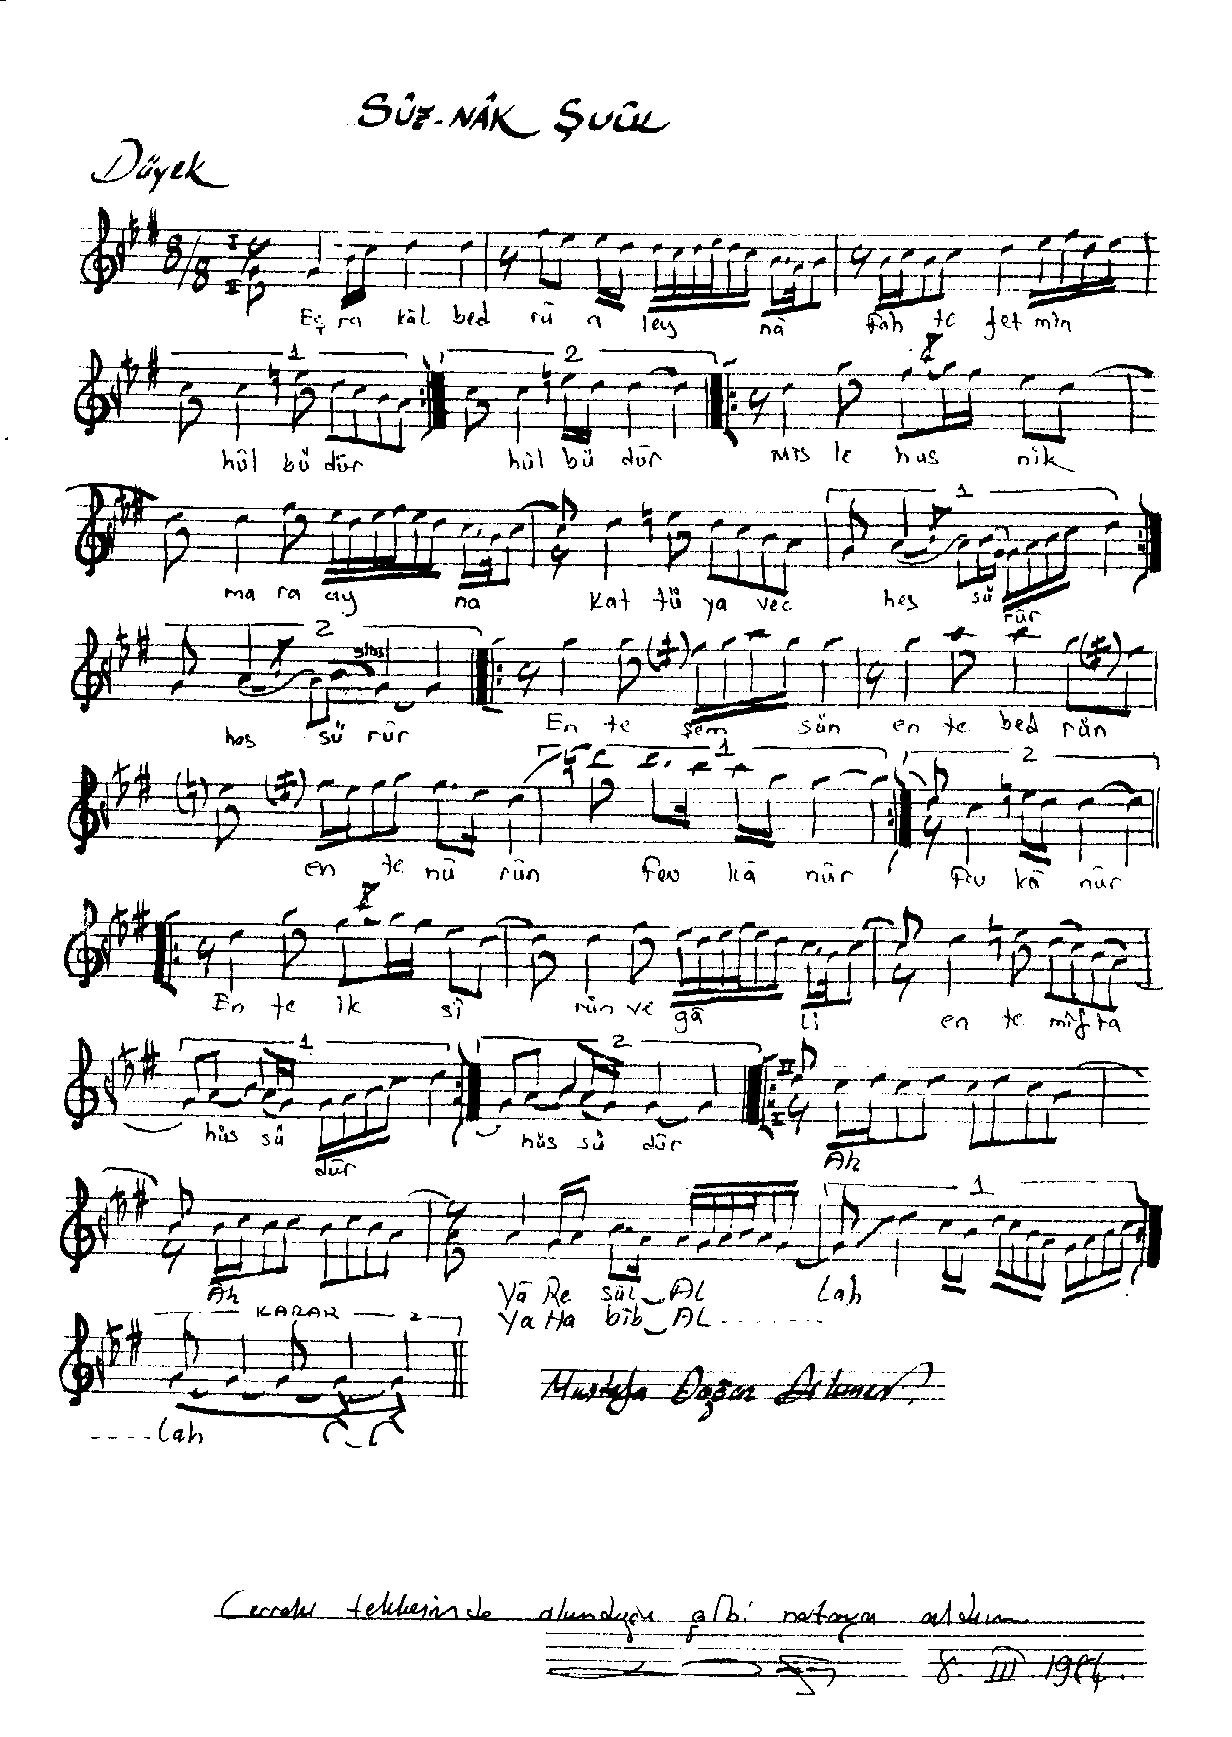 SÛZ-NÂK ŞUÛL
Düyek
8/8 I II
Eş ra kâl bed rü a ley nâ Fah te fet min
1 2
hûl bü dûr hûl bü dûr Mis le hus nik
1
ma ra ay na kat tü ya vec hes sü rûr
2
hes sü rûr En te şem sün en te bed rün
1 2
en te nû rün fev kâ nûr fev kâ nûr
En te ik sî rün ve gâ lî en te mif ta
1 2 II I
hüs sü dûr hüs sü dûr Ah
1
Ah Yâ Re sûl AL Lah
Ya Ha bîb AL
KARAR 2
Lah
Mustafa Doğan
Cerrahi tekkesinde okunduğu gibi notaya aldım
8. III. 1984.